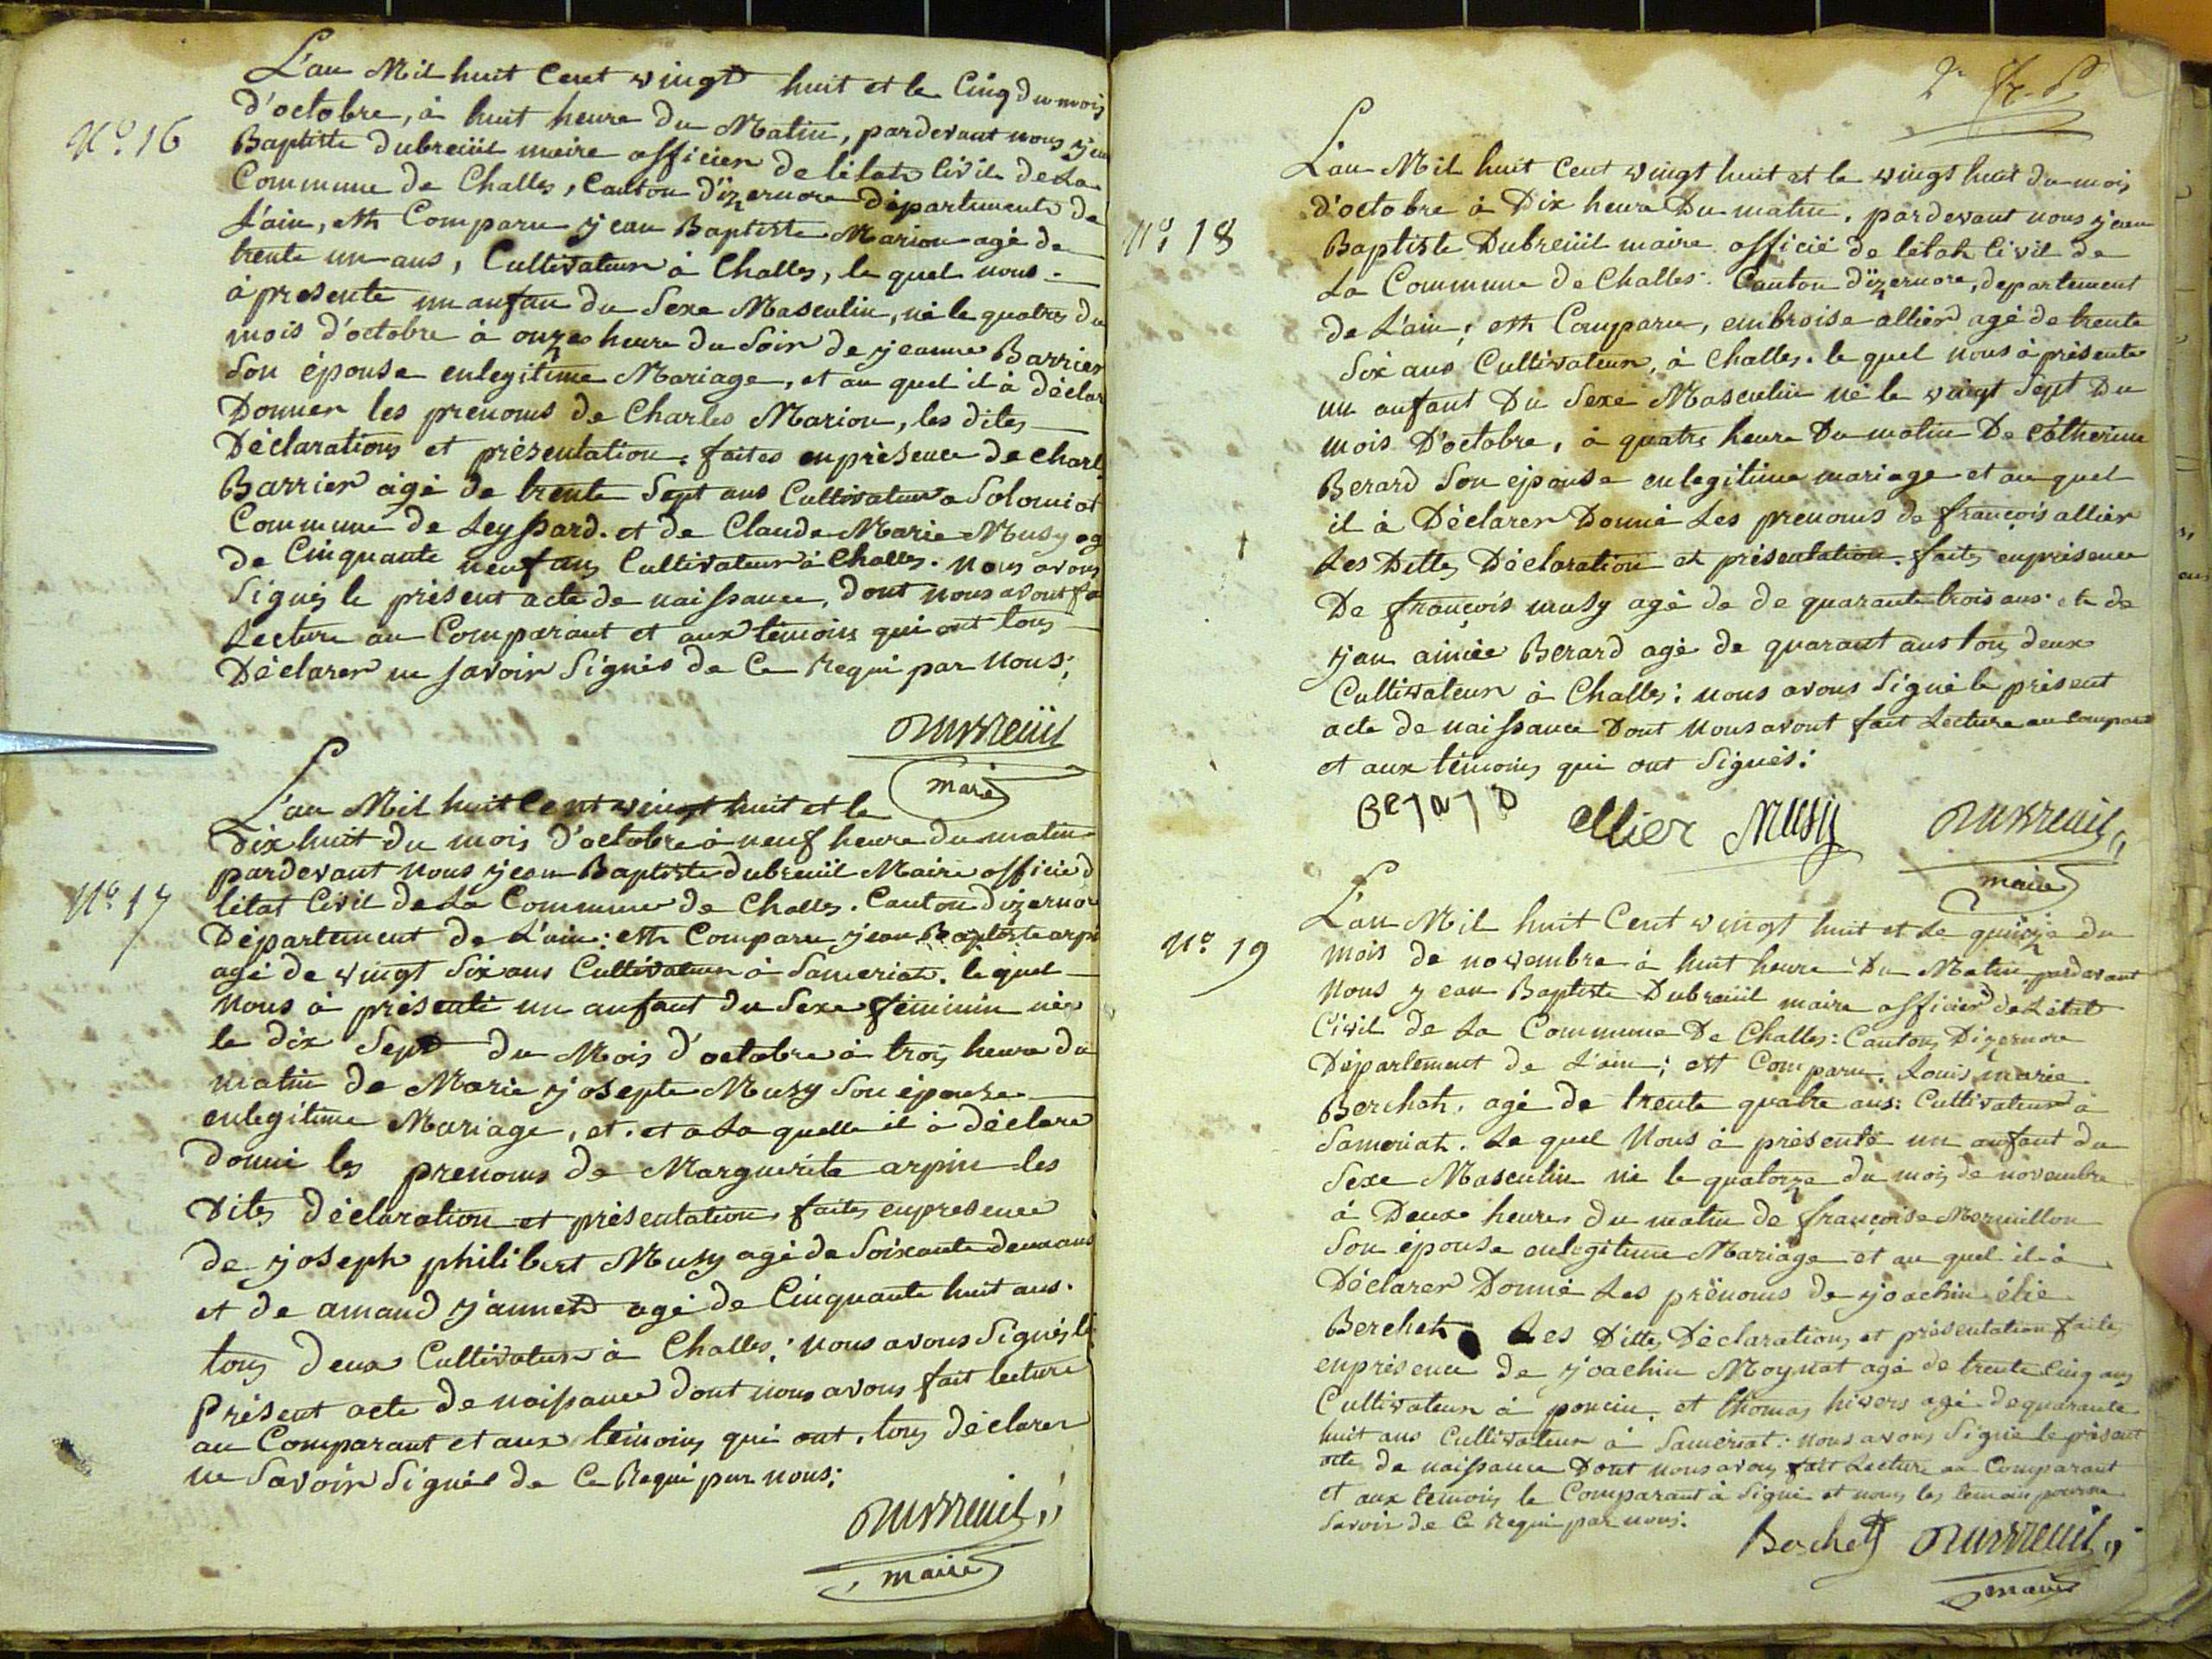 L'an Mil huit Cent vingt huit et le Cinq du mois
d'octobre, à huit heure du Matin, pardevant nous jean
N.º 16
Baptiste dubreüil maire officier de létat Civil de La
Commune de Challes, Canton d'izernore département de
L'ain, est Comparu jean Baptiste Marion agé de
trente un ans, Cultivateur à Challes, le quel nous
à présenté un anfan du Sexe Masculin, né le quatre du
mois d'octobre à onze heure du Soir de jeanne Barrier
Son épouse enlegitime Mariage, et au quel il à déclar
Donner les prenoms de Charles Marion, les dites
Déclarations et présentation. faites enprésence de Charl
Barrier agé de trente Sept ans Cultivateur a Solomiat
Commune de Leyssard. et de Claude Marie Musy ag
de Cinquante neuf ans Cultivateur à Challes. nous avons
Signés le présent acte de naissance, dont nous avont fa
Lecture au Comparant et aux témoins qui ont tous
Déclarer ne savoir Signés de Ce Requi par nous;
Dubreüil
maire
L'an Mil huit Cent vingt huit et le
Dix huit du mois d'octobre à neuf heure du matin
pardevant nous jean Baptiste dubreüil Maire officié d
N.º 17
létat Civil de La Commune de Challes. Canton dizerno
Département de L'ain: est Comparu jean Baptiste arpi
agé de vingt Six ans Cultivateur à Sameriat. le quel
Nous à présenté un anfant du Sexe féminin née
le dix Sept du Mois d'octobre à trois heure du
matin de Marie josepte Musy Son épouse
enlegitime Mariage, et. et a La quelle il à déclare
donné les prenoms de Marguerite arpin les
Dites déclaration et présentation faites enpresence
de joseph philibert Musy agé de Soixante deux ans
et de amand jannet agé de Cinquante huit ans.
tous deux Cultivateur à Challes: nous avons Signés le
Présent acte de naissance dont nous avons fait lecture
au Comparant et aux témoins qui ont. tous déclarer
ne Savoir Signés de Ce Requi par nous;
Dubreüil
maire
L'an Mil huit Cent vingt huit et le vingt huit du mois
d'octobre à Dix heure Du matin. pardevant nous jean
N.º 18
Baptiste Dubreüil maire officié de létat Civil de
La Commune de Challes. Canton d'izernore, departement
de L'ain; est Comparu, embroise allier agé de trente
Six ans Cultivateur, à Challes. le quel nous à présenté
un anfant Du Sexe Masculin né le vingt Sept Du
mois D'octobre, à quatre heure Du matin De Cátherine
Berard Son épouse enlegitime mariage et au quel
il à Déclarer Donné Les prenoms de françois allier
Les Dittes Déclaration et présentation. faites enprésence
De françois musy agé de de quarante trois ans. et de
jean aimée Berard agé de quarant ans tous deux
Cultivateur à Challes: nous avons Signé le présent
acte de naissance Dont Nous avont fait Lecture au compara
et aux témoins qui ont Signés:
Berard allier Musy Dubreüil
maire
L'an Mil huit Cent vingt huit et Le quinze du
N.º 19
mois de novembre à huit heure Du Matin pardevant
Nous jean Baptiste Dubreüil maire officier de Létat
Civil de La Commune De Challes: Canton Dizernore
Département de L'ain; est Comparu, Louis marie
Berchet. agé de trente quatre ans: Cultivateur à
Sameriat. Le quel Nous à présenté un anfant du
Sexe Masculin né le quatorze du mois de novembre
à Deux heures du matin de françoise Mermillon
Son épouse enlegitime Mariage et au quel il à
Déclarer Donné Les prénoms de joachin élie
Berchet Les Dittes Déclarations et présentation faites
enprésence de joachin Moynat agé de trente Cinq ans
Cultivateur à poncin, et thomas hivers agé de quarante
huit ans Cultivateur à Samériat: nous avons Signé le présent
acte de naissance Dont nous avons fait Lecture au Comparant
et aux témoins le Comparant à Signé et nous les témoin pour ne
Savoir de Ce Requi par nous.
Berchet Dubreüil
maire